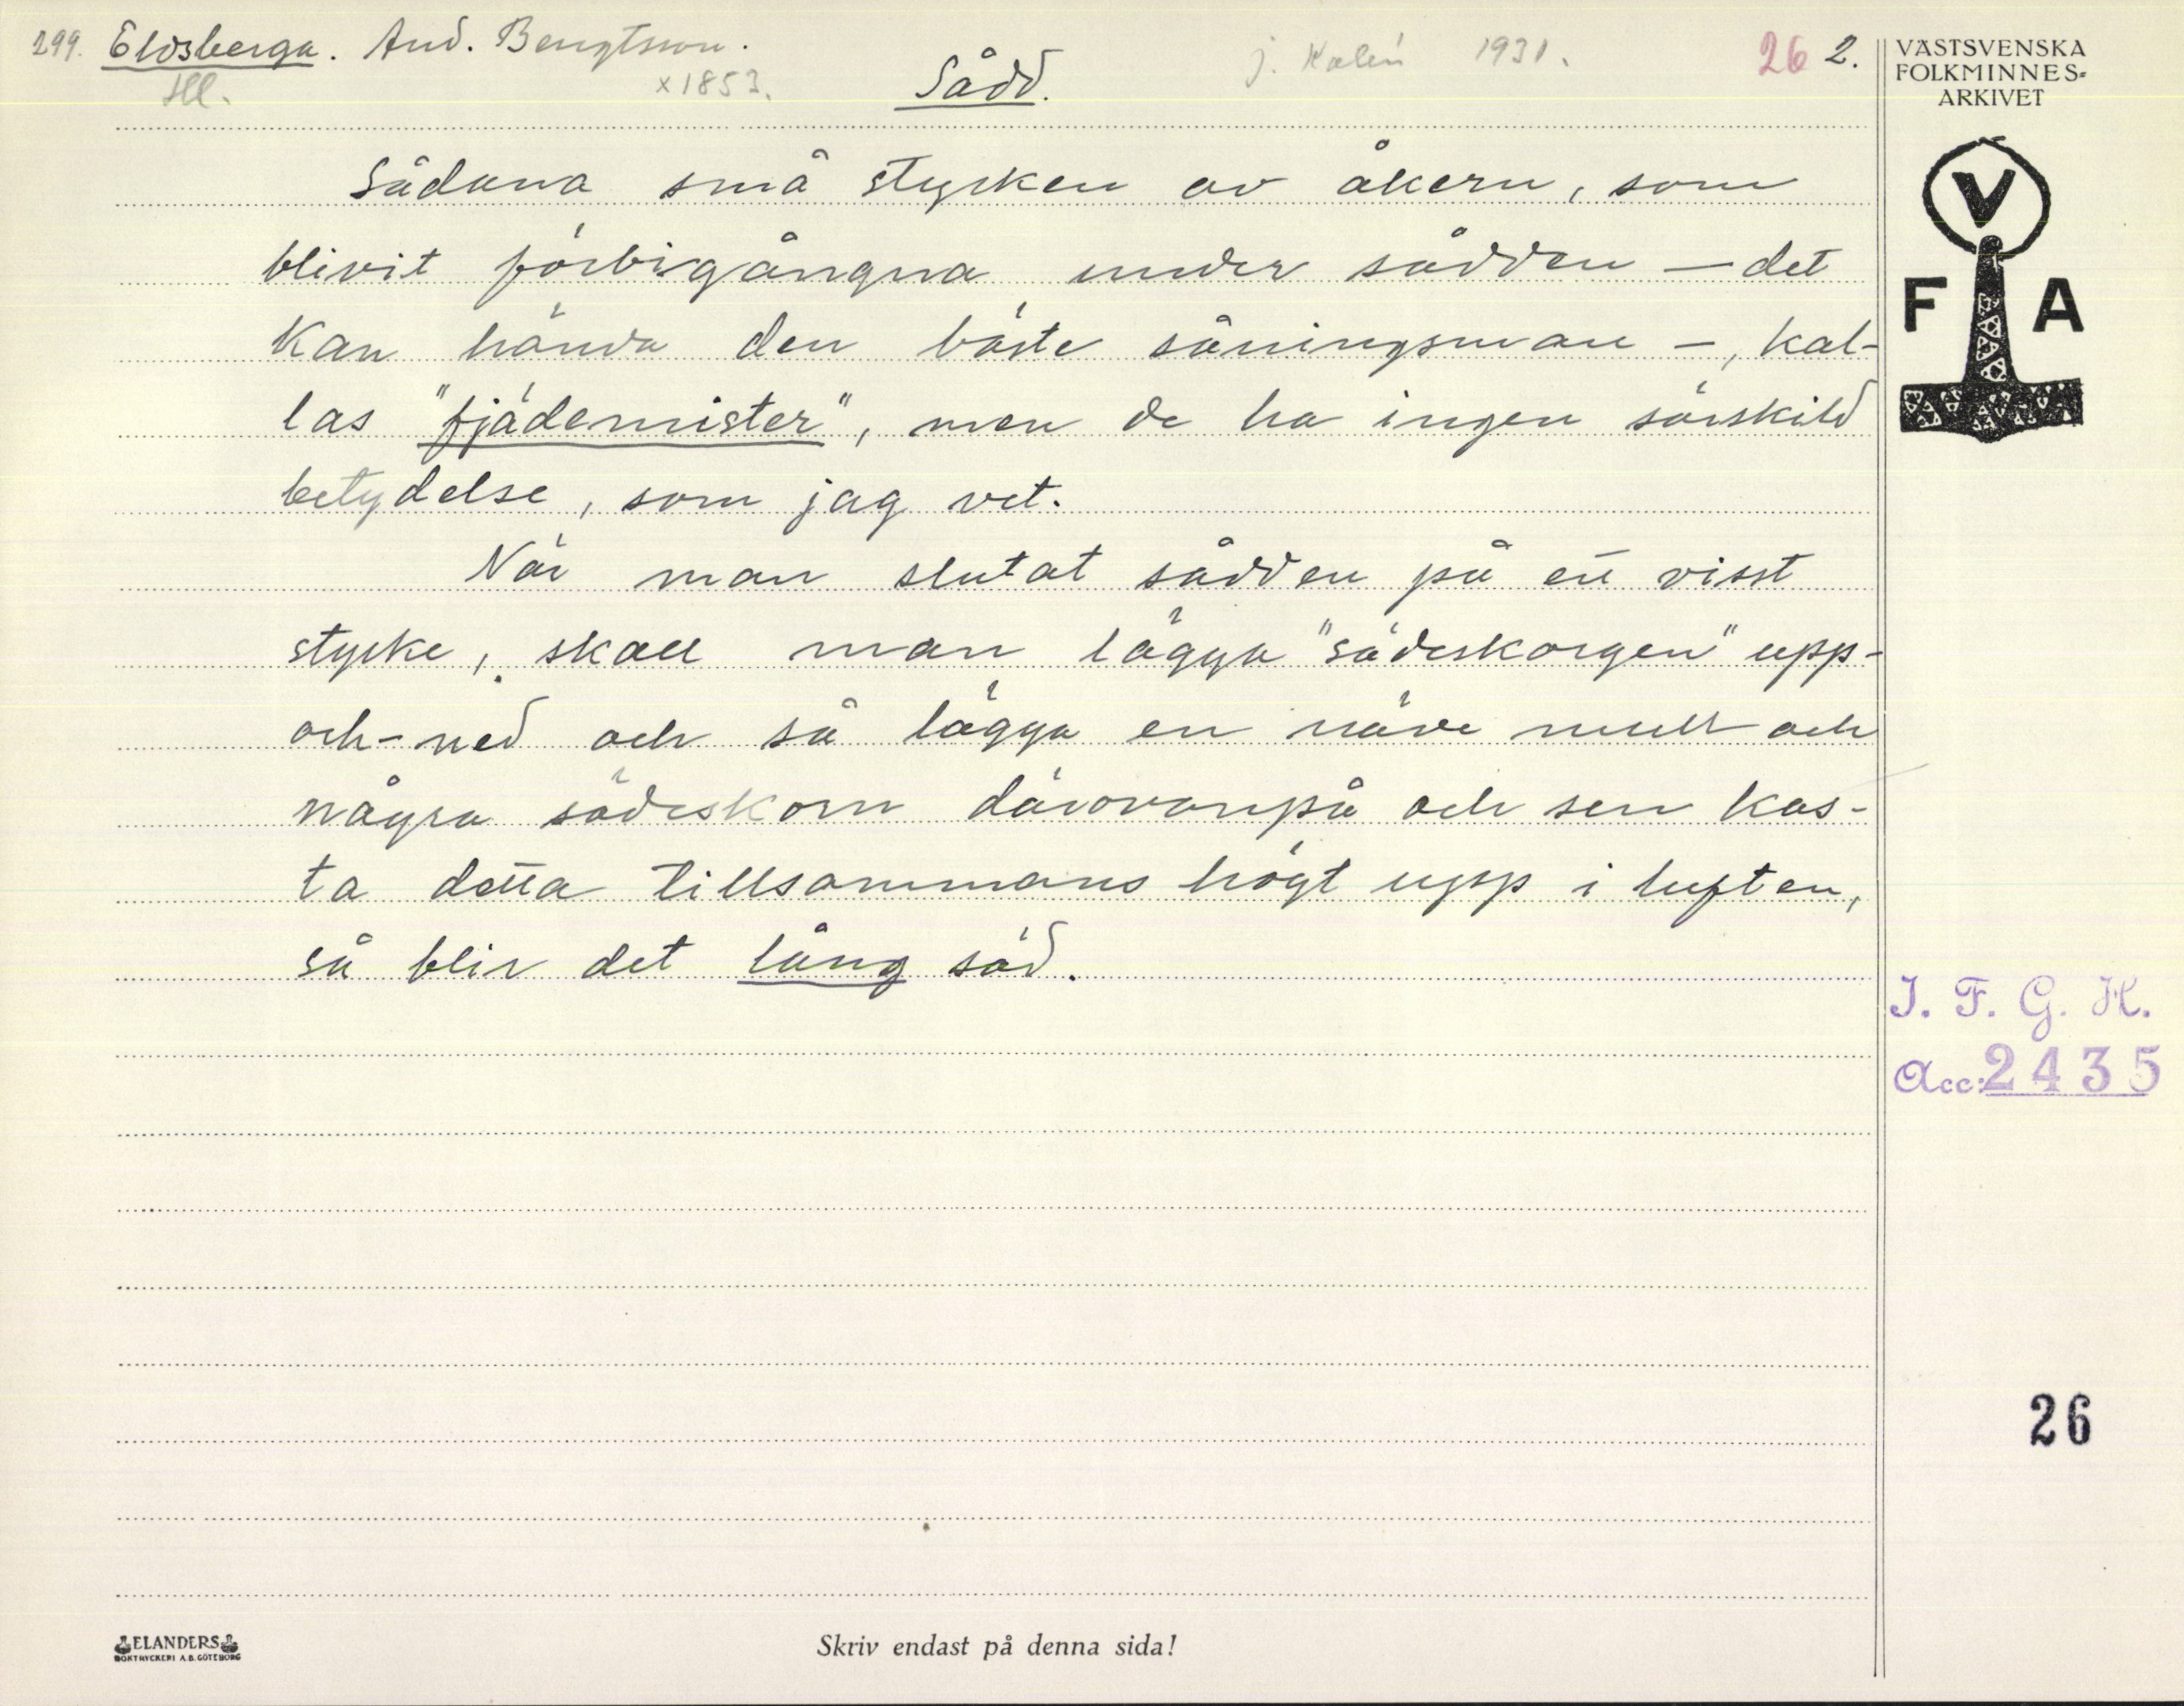 299. Eldsberga. And. Bengtsson.
Hl.
x 1853.
Sådd.
J. Kalén 1931.
26 2.
VÄSTSVENSKA
FOLKMINNES-
ARKIVET
V
F A
Sådana små stycken av åkern, som
blivit förbigångna under sådden — det
kan hända den bäste såningsman —, kal-
las "fjädemister", men de ha ingen särskild
betydelse, som jag vet.
När man slutat sådden på ett visst
stycke, skall man lägga "sädeskorgen" upp-
och-ned och så lägga en näve mull och
några sädeskorn därovanpå och sen kas-
ta detta tillsammans högt upp i luften,
så blir det lång säd.
I. F. G. H.
Acc: 2435
26
ELANDERS
BOKTRYCKERI A.B. GÖTEBORG
Skriv endast på denna sida!